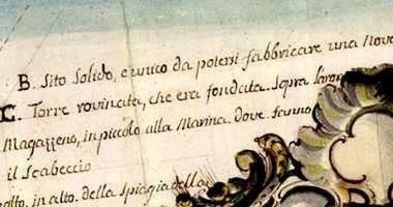 B. Sito Solido, e unico da potersi fabbricare una Nove
C. Torre rovinata, che era fondata sopra
Magazzeno, in piccolo alla Marina dove fanno
il Scabeccio
in alto della Spiagia della